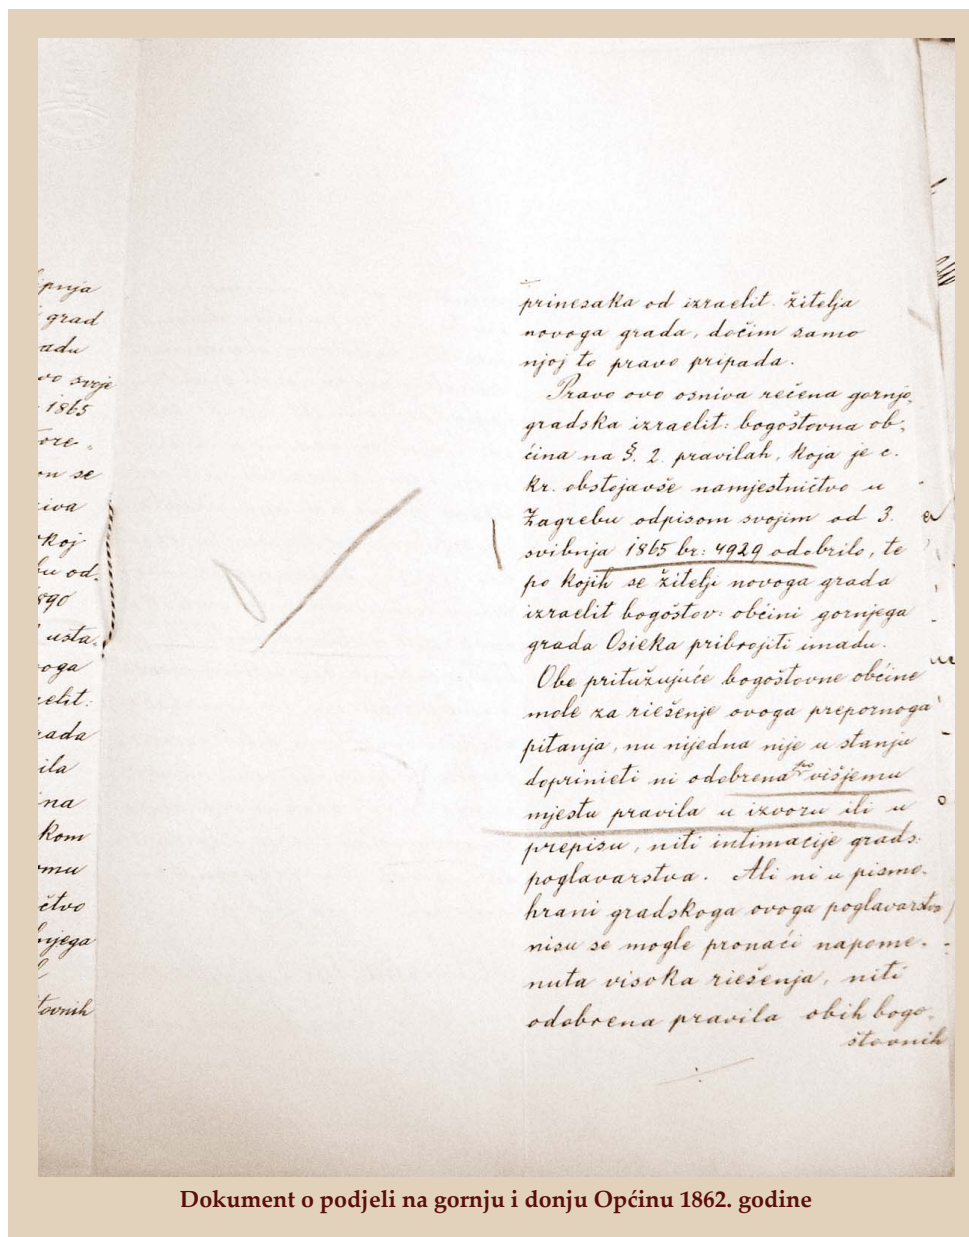 ipnja
grad
adu
vo svoje
1865
ore
on se
iva
koj
bu od.
890
usta.
voga
elit:
rada
ila
ina
kom
omu
čtvo
njega
tovnih
prinesaka od izraelit. žitelja
novoga grada, dočim samo
njoj to pravo pripada.
Pravo ovo osniva rečena gornjo,
gradska izraelit: bogoštovna ob,
ćina na §. 2. pravilah, koja je c.
kr. obstojavše namjestničtvo u
Zagrebu odpisom svojim od 3.
svibnja 1865 br: 4929 odobrilo, te
po kojih se žitelji novoga grada
izraelit bogoštov: občini gornjega
grada Osieka pribrojiti imadu.
Obe pritužujuće bogoštovne občine
mole za riešenje ovoga prepornoga
pitanja, nu nijedna nije u stanju
doprinieti ni odobrena po višjemu
mjestu pravila u izvoru ili u
prepisu, niti intimacije grads:
poglavarstva. Ali ni u pismo.
hrani gradskoga ovoga poglavarstva
nisu se mogle pronaći napome.
nuta visoka riešenja, niti
odobrena pravila obih bogo.
štovnih
Dokument o podjeli na gornju i donju Općinu 1862. godine